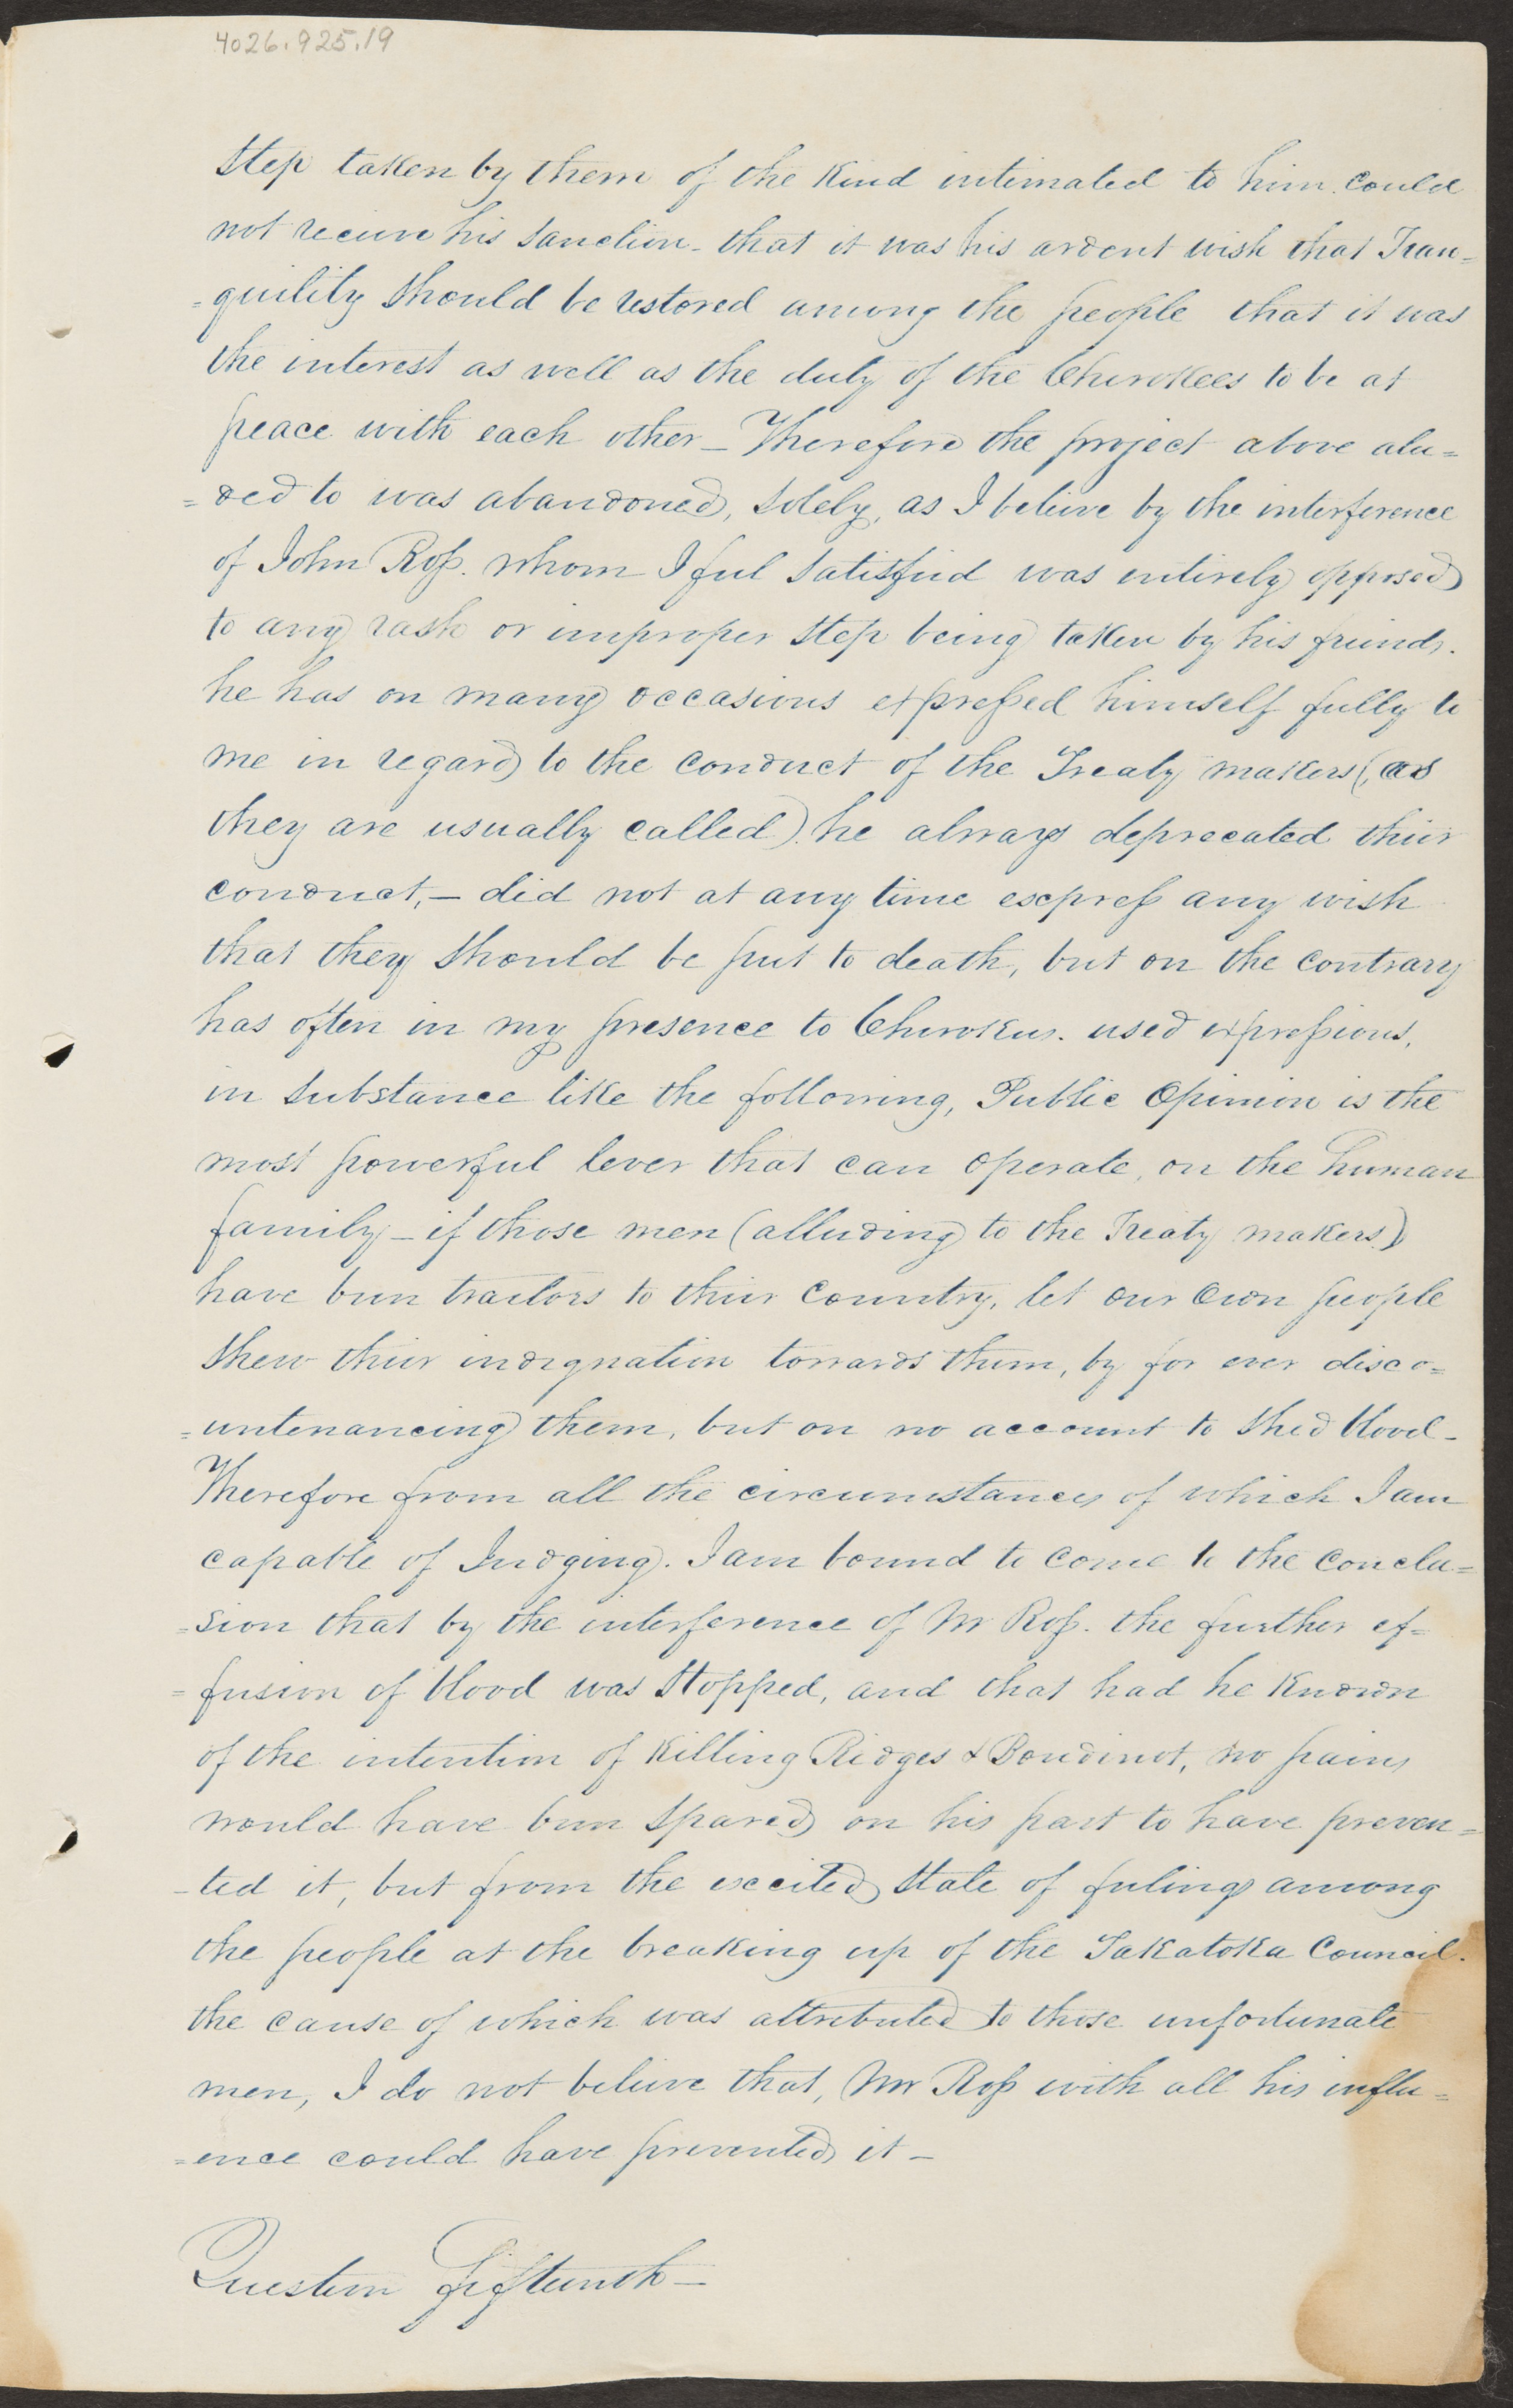 4026.925.19
Step taken by them of the Kind intimated to him could
not receive his Sanction - that it was his ardent wish that Tran=
=quility Should be restored among the people that it was
the interest as well as the duty of the Cherokees to be at
peace with each other - Therefore the project above alu=
=ded to was abandoned, Solely, as I believe by the interference
of John Roſs. whom I feel Satisfied was entirely opposed
to any rash or improper Step being taken by his friends.
he has on many occasions expreſsed himself fully to
me in regard to the Conduct of the Treaty makers (as
they are usually called) he always deprecated their
conduct, - did not at any time expreſs any wish
that they Should be put to death, but on the Contrary
has often in my presence to Cherokees. used expreſsions,
in Substance like the following, Public Opinion is the
most powerful lever that can Operate, on the human
family - if those men (alluding to the Treaty makers)
have been traitors to their Country, let our Own people
Shew their indignation towards them, by for ever disco=
=untenancing them, but on no account to Shed blood -
Therefore from all the circumstances of which I am
capable of Judging. I am bound to Come to the Conclu=
=sion that by the interference of Mr Roſs. the further ef=
=fusion of blood was Stopped, and that had he Known
of the intention of Killing Ridges & Boudinot, no pains
would have been Spared on his part to have preven=
-ted it, but from the excited State of feelings among
the people at the breaking up of the Takatoka Council.
the cause of which was attributed to those unfortunate
men, I do not believe that, Mr Roſs with all his influ=
=ence could have prevented it -
Question Fifteenth -